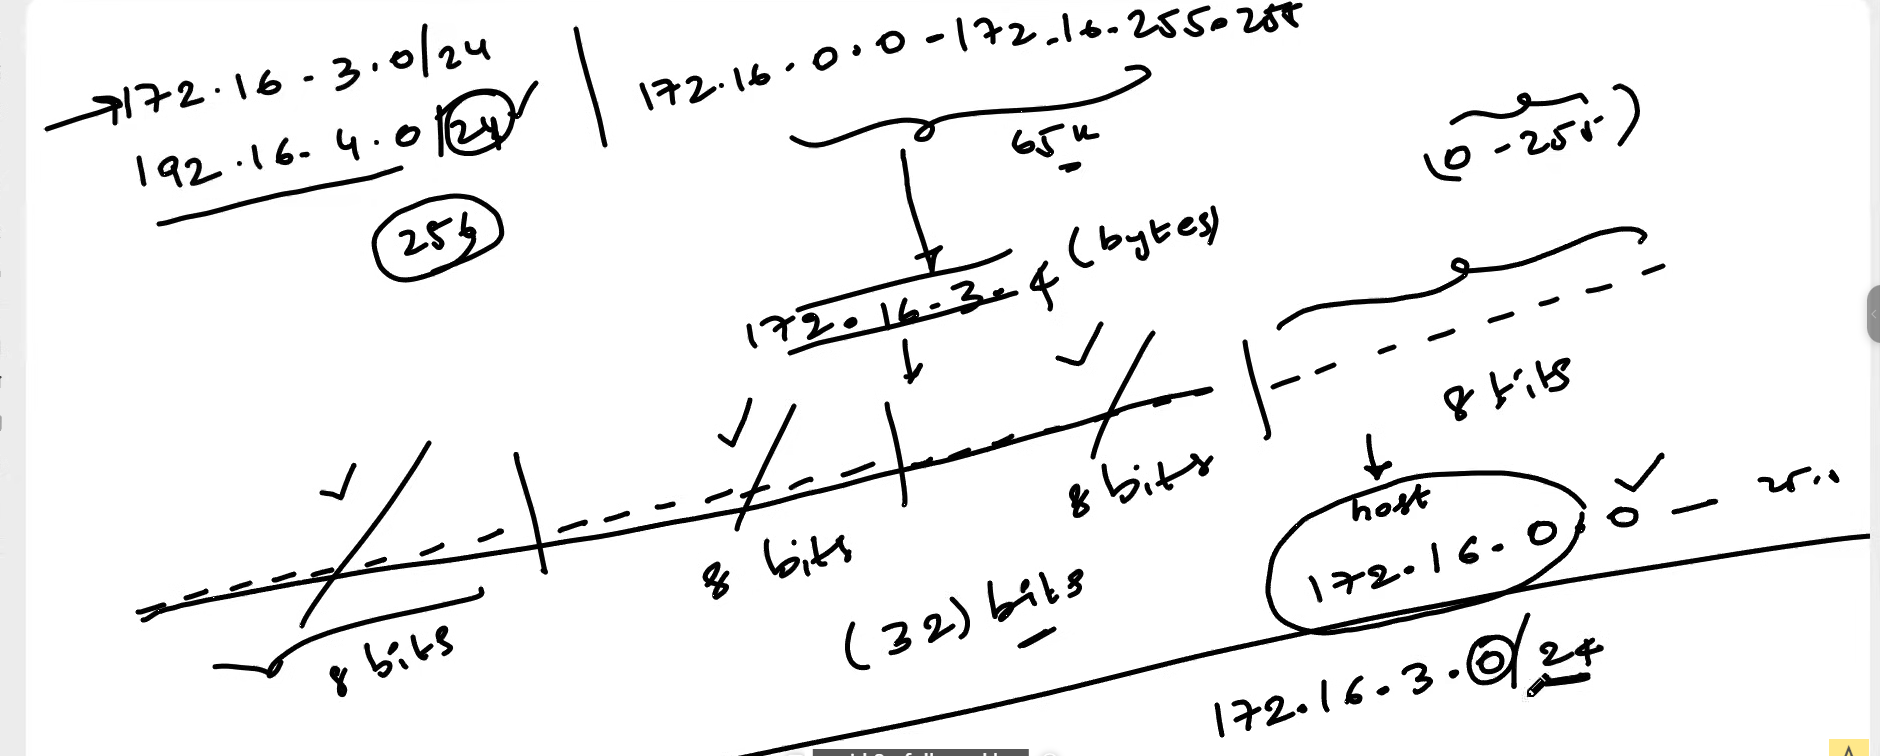 172.16.3.0/24
192.16.4.0/24
256
172.16.0.0-172.16.255.255
65k
(0-255)
(bytes)
172.16.3.4
8 bits
8 bits
8 bits
8 bits
(32) bits
host
172.16.0.0 —
172.16.3.0/24